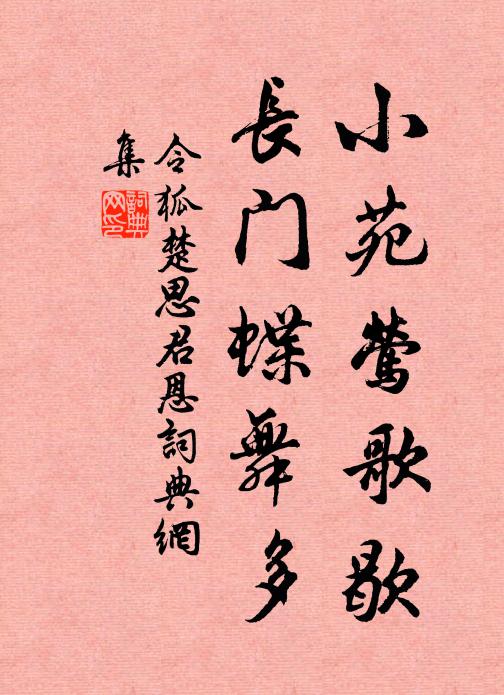 小苑莺歌歇
長门蝶舞多
令狐楚思君恩詞典網
集
詞典网印